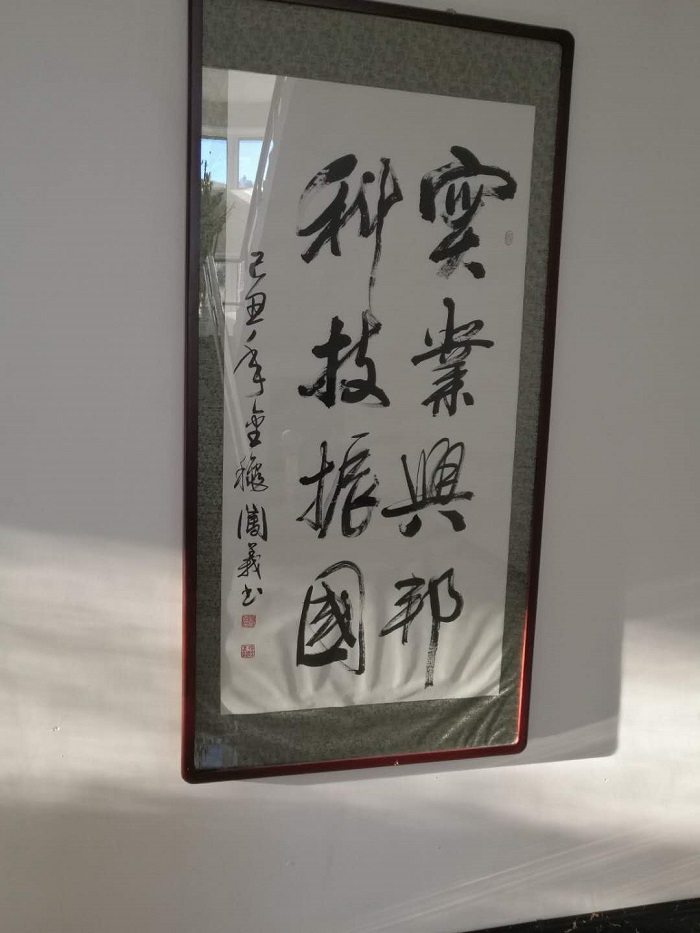 實業興邦
科技振國
己丑年金穐 義书